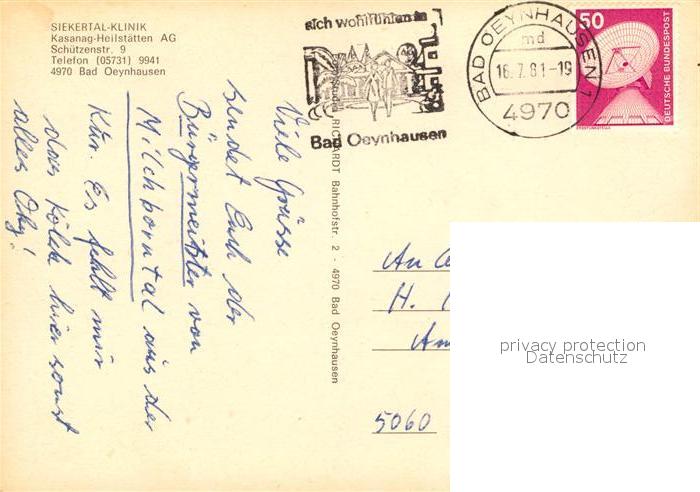 SIEKERTAL-KLINIK
Kasanag-Heilstätten AG
Schützenstr. 9
Telefon (05731) 9941
4970 Bad Oeynhausen
sich wohlfühlen in
Bad Oeynhausen
BAD OEYNHAUSEN 1
md
16.7.81-19
4970
50
DEUTSCHE BUNDESPOST
ERDEFUNKSTELLE
Viele Grüsse
sendet Euch der
Bürgermeister von
Milchborntal aus der
Kur. Es fehlt mir
das Kölch hier sonst
alles Oky!
RICHARDT Bahnhofstr. 2 - 4970 Bad Oeynhausen
An
H.
Am
5060
privacy protection
Datenschutz